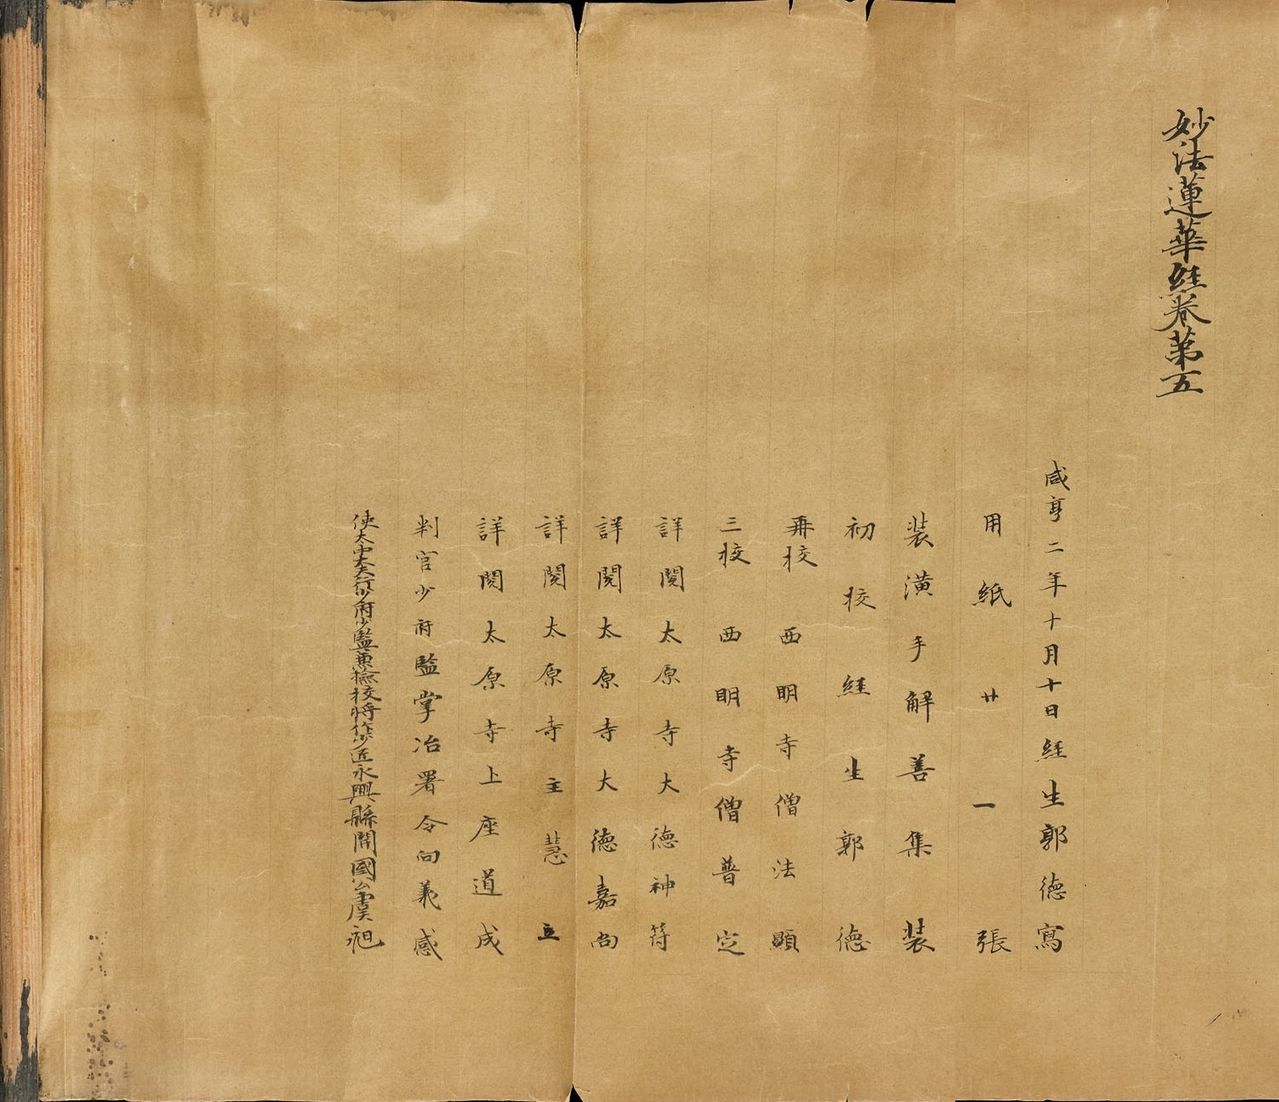 妙法蓮華経卷第五
咸亨二年十月十日経生郭德寫
用紙廿一張
装潢手解善集装
初校経生郭德
再校西明寺僧法顯
三校西明寺僧普定
詳閱太原寺大德神符
詳閱太原寺大德嘉尚
詳閱太原寺主慧立
詳閱太原寺上座道成
判官少府監掌冶署令向義感
使太中大夫行少府少監兼檢校將作少匠永興縣開國公虞昶